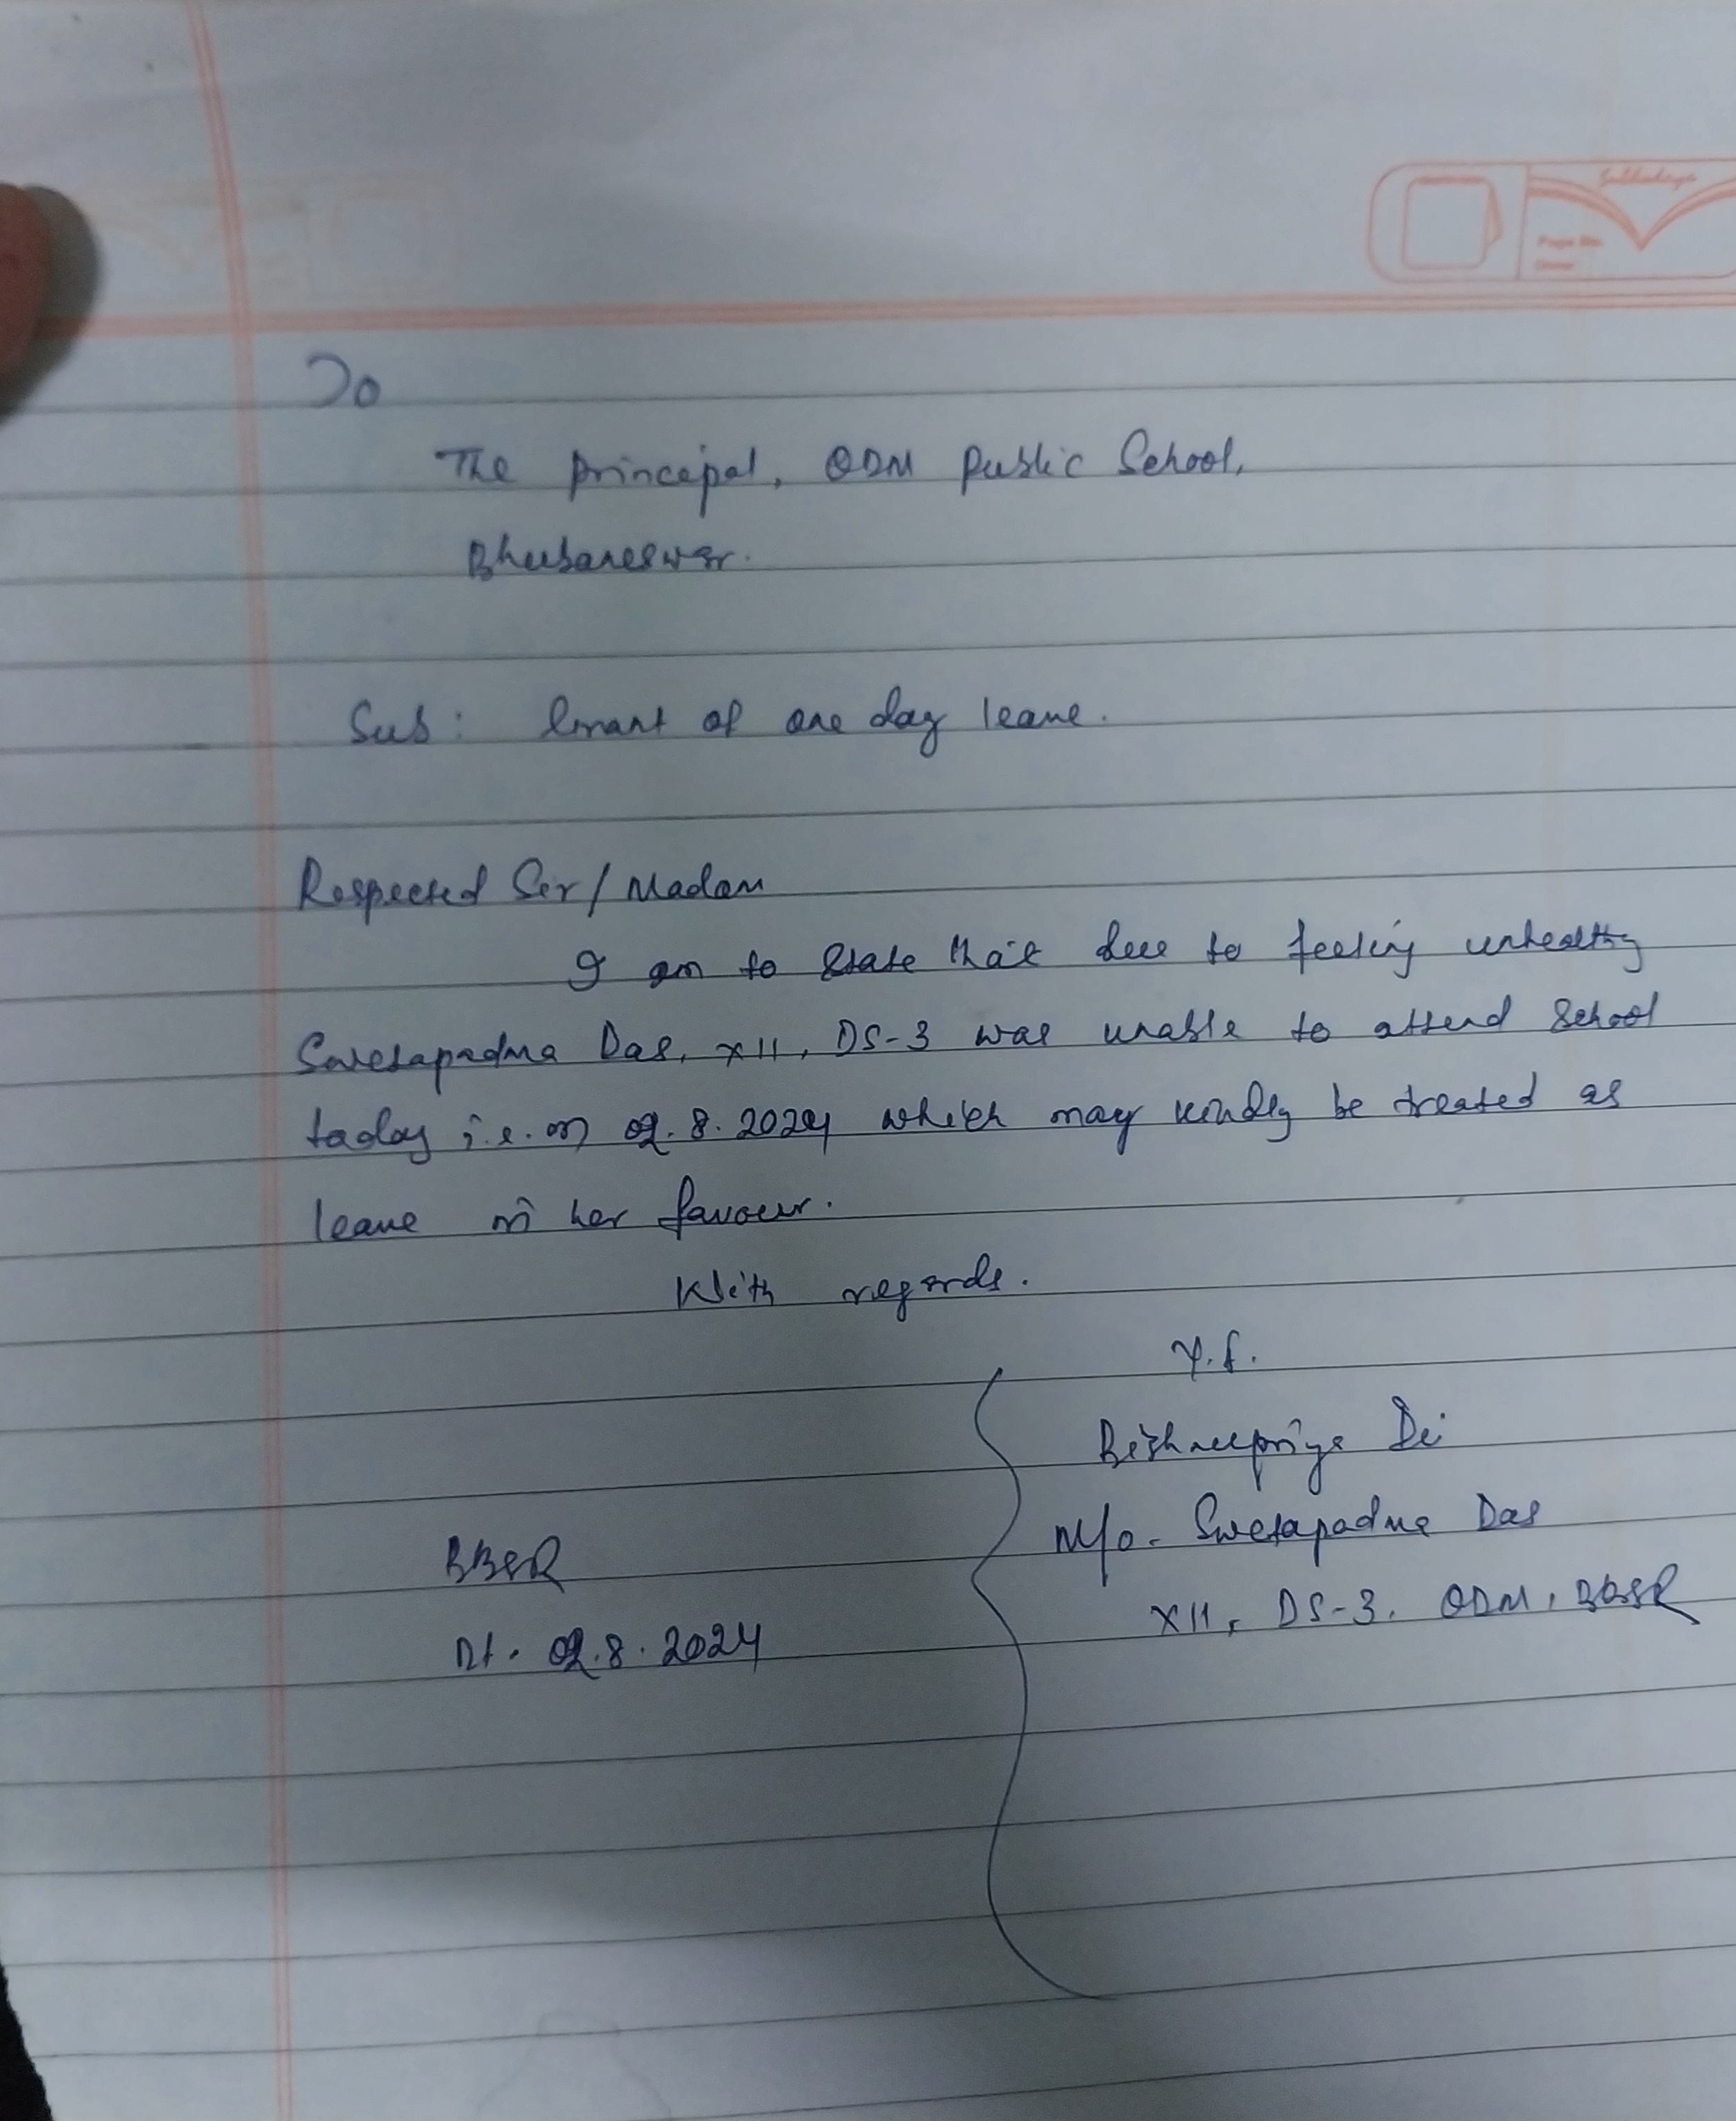 To
The principal, ODM Public School,
Bhubaneswar.
Sub: Grant of one day leave.
Respected Sir/Madam
I am to state that due to feeling unhealthy
Swetapadma Das, XII, DS-3 was unable to attend School
today i.e. on 02.8.2024 which may kindly be treated as
leave in her favour.
With regards.
Y.f.
Bishnupriya Dei
M/o- Swetapadma Das
XII, DS-3, ODM, BBSR
BBSR
Dt. 02.8.2024